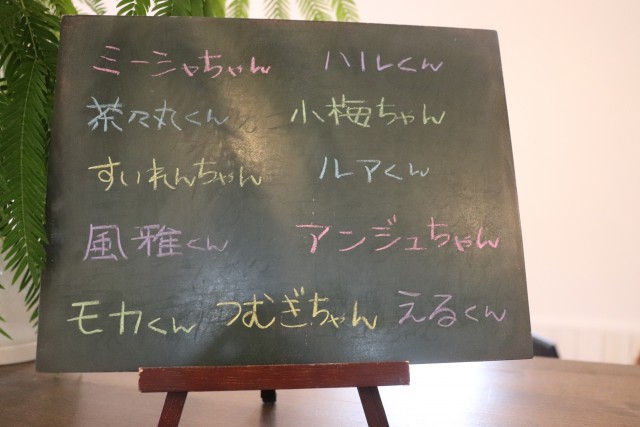 ミーシャちゃん ハルくん
茶々丸くん 小梅ちゃん
すいれんちゃん ルアくん
風雅くん アンジュちゃん
モカくん つむぎちゃん えるくん